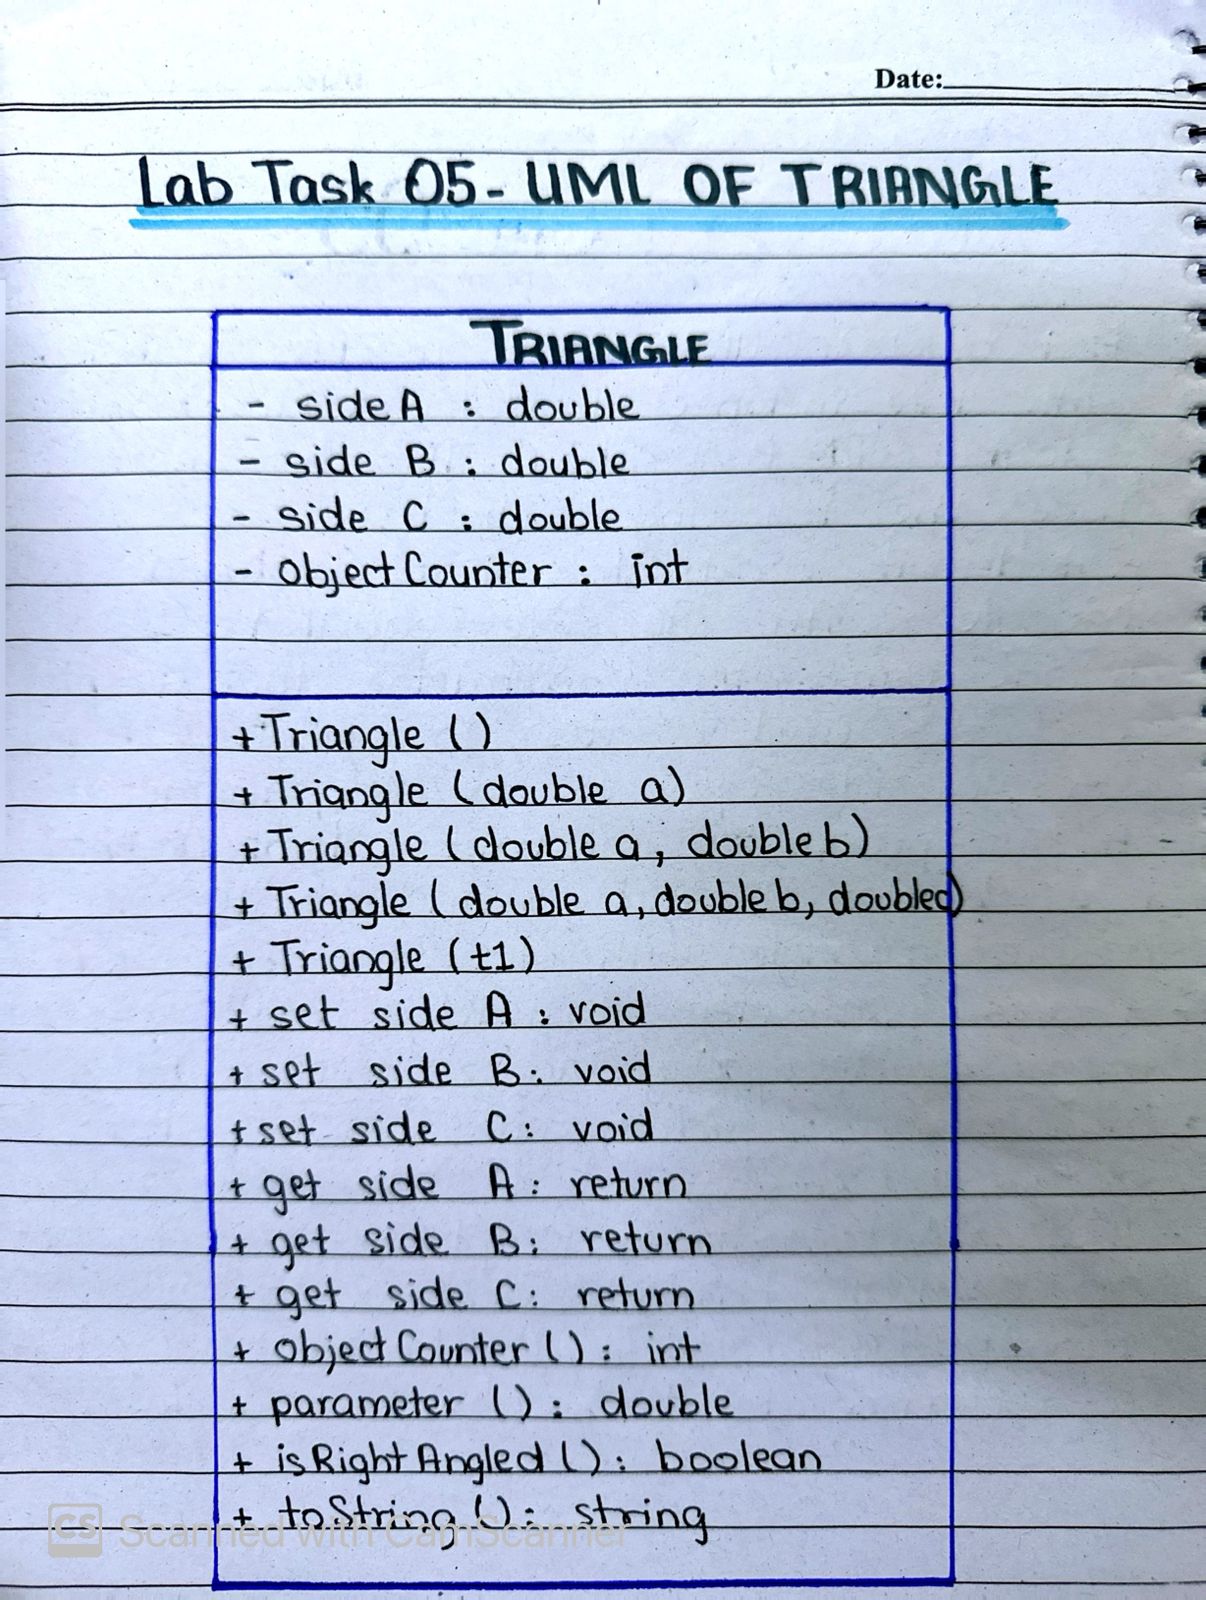 Date:
Lab Task 05 - UML OF TRIANGLE
TRIANGLE
- sideA : double
- side B : double
- side C : double
- objectCounter : int
+ Triangle ()
+ Triangle (double a)
+ Triangle (double a, double b)
+ Triangle (double a, double b, double c)
+ Triangle (t1)
+ set side A : void
+ set side B: void
+ set side C: void
+ get side A: return
+ get side B: return
+ get side C: return
+ objectCounter (): int
+ parameter (): double
+ isRightAngled (): boolean
+ toString (): string
CS Scanned with CamScanner